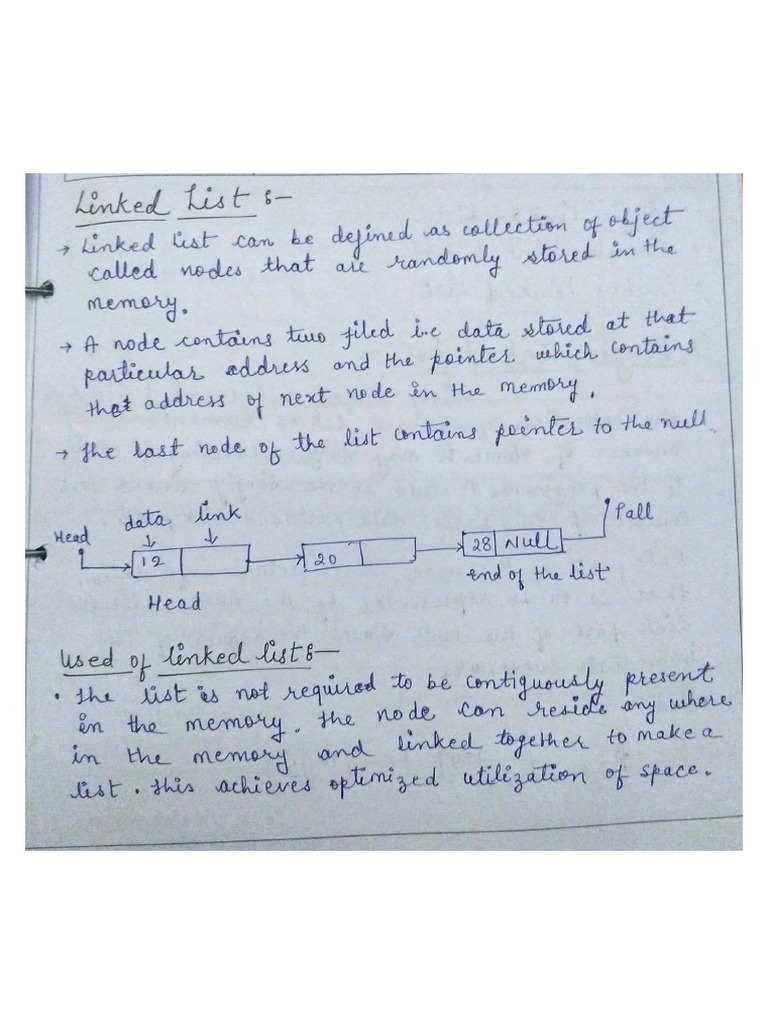 Linked List :-
→ Linked List can be defined as collection of object
called nodes that are randomly stored in the
memory.
→ A node contains two filed i.e data stored at that
particular address and the pointer which contains
that address of next node in the memory.
→ The last node of the list contains pointer to the null.
Head data link Tall
12 20 28 Null
Head end of the list
Used of linked list :-
• The list is not required to be contiguously present
in the memory. The node can reside any where
in the memory and linked together to make a
list. This achieves optimized utilization of space.